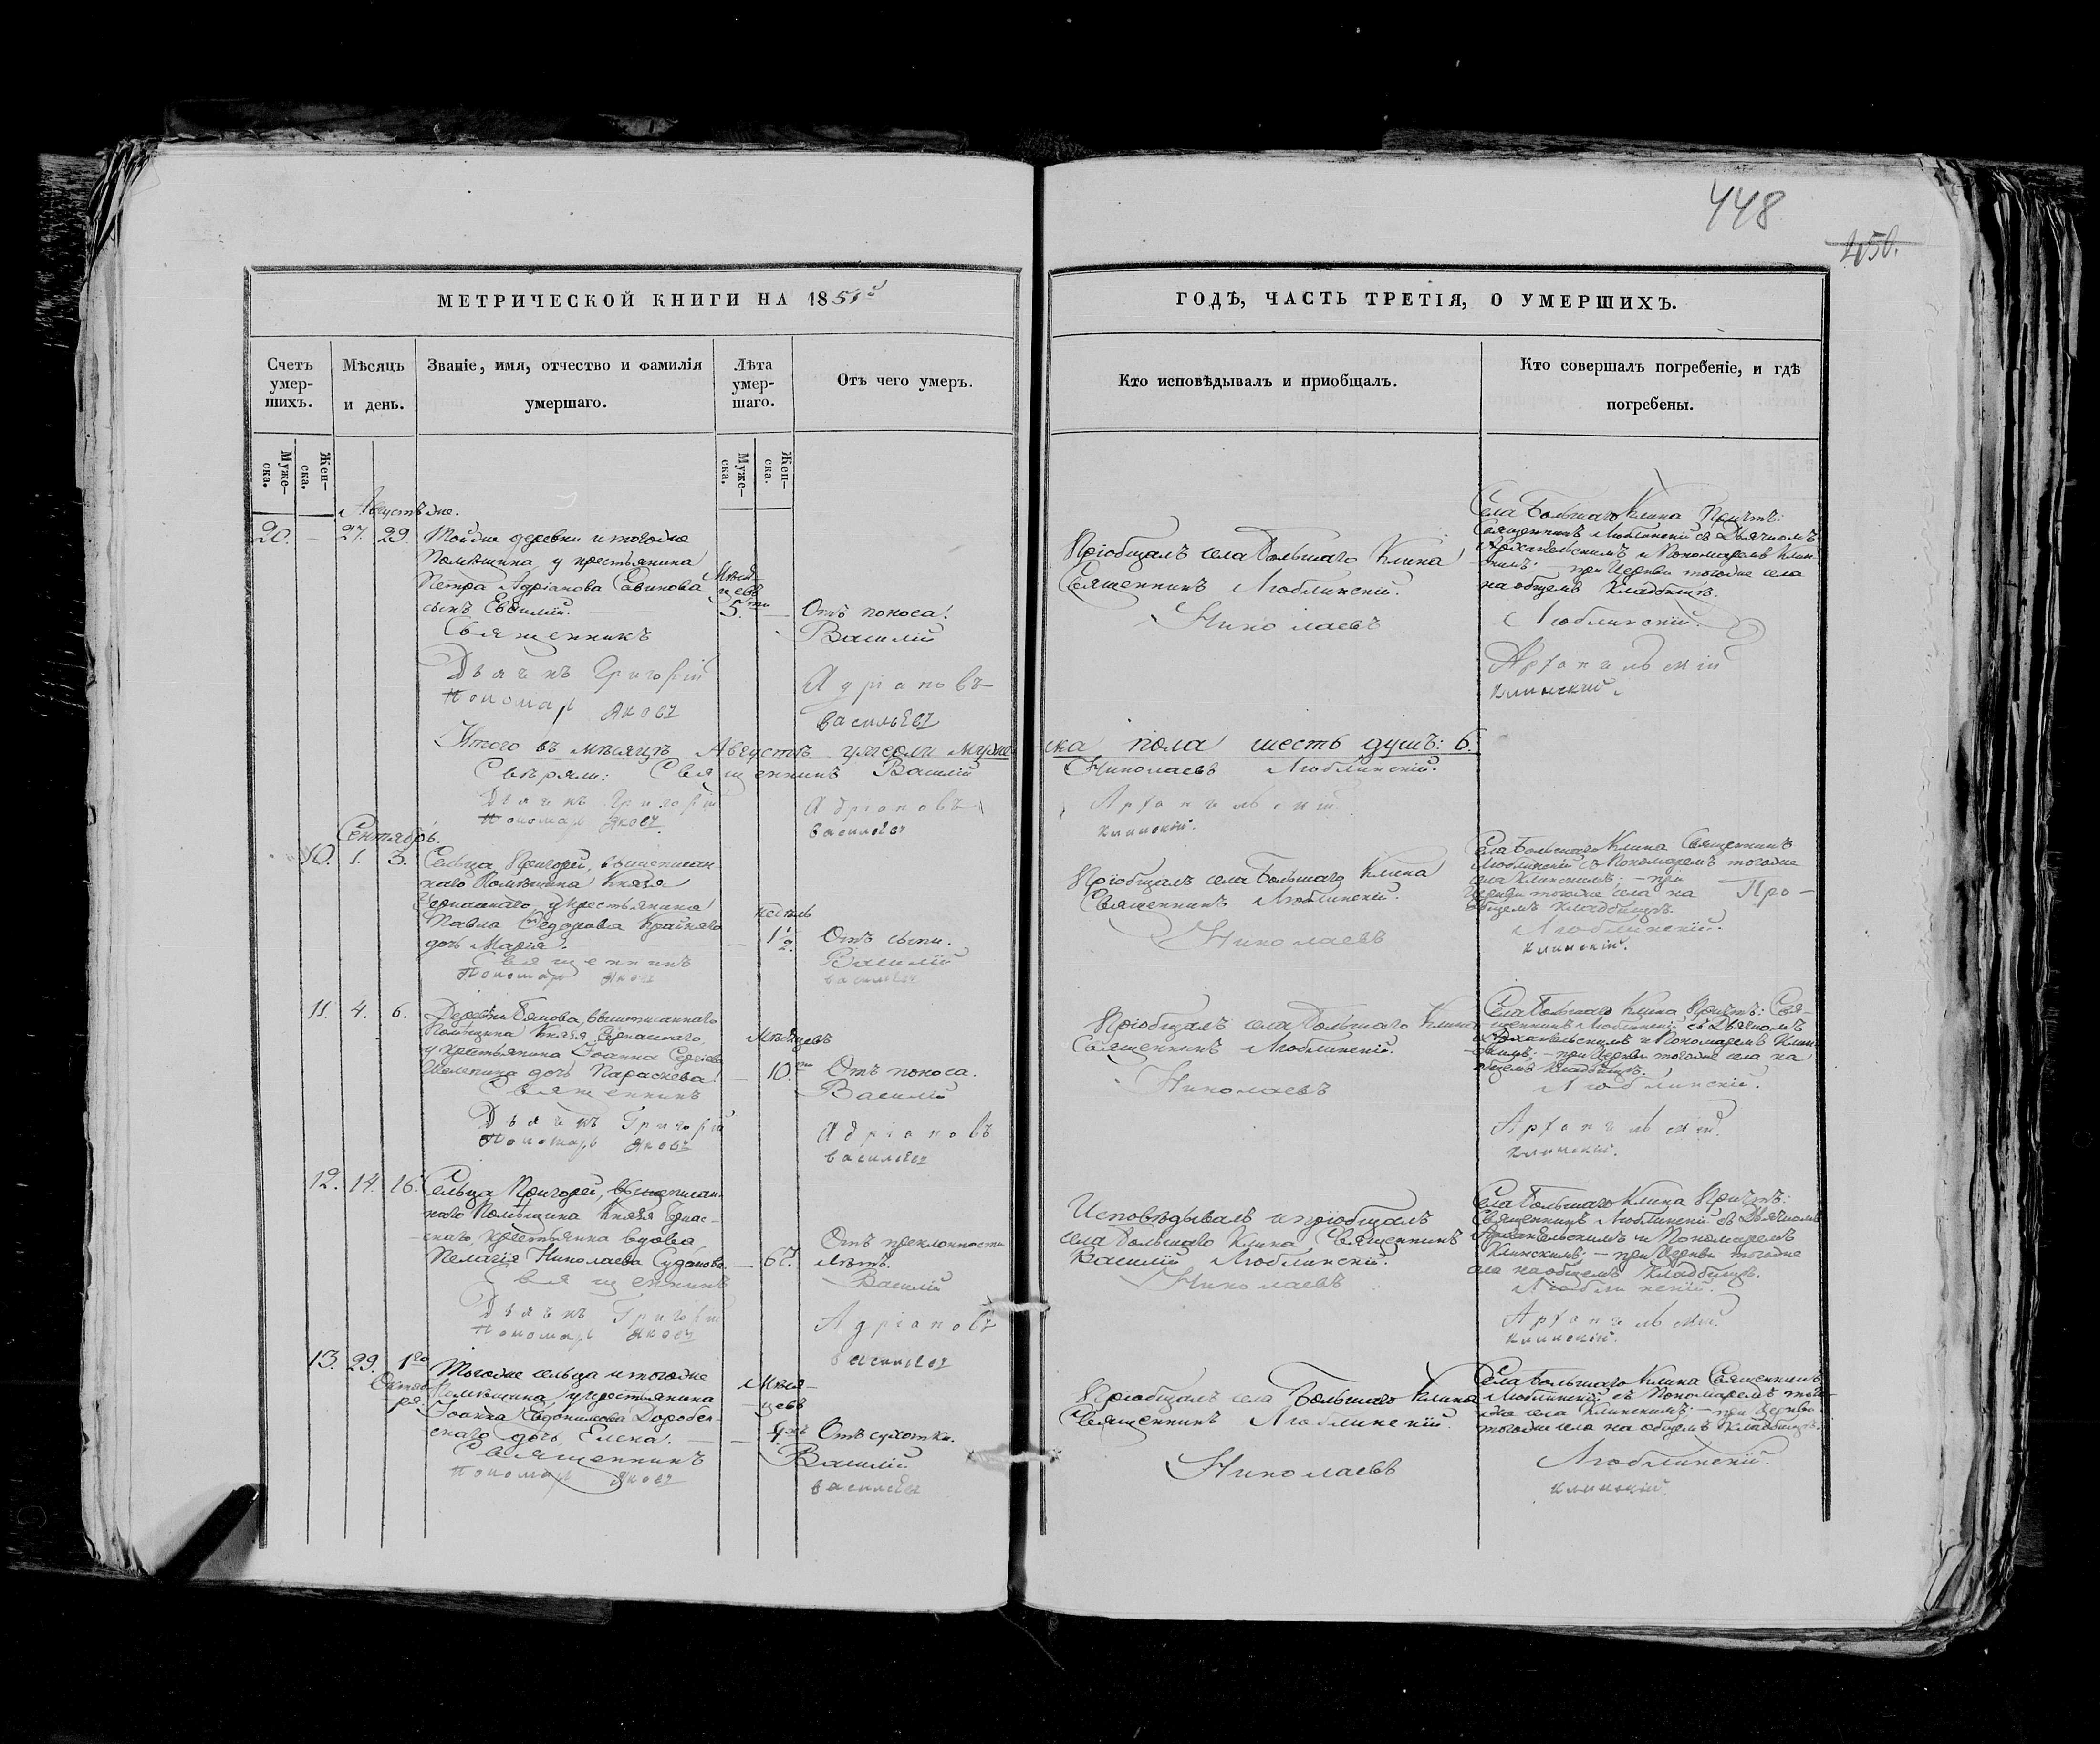 448
450.
МЕТРИЧЕСКОЙ КНИГИ НА 1851й
ГОДѢ, ЧАСТЬ ТРЕТІЯ, О УМЕРШИХЪ.
Счетъ умер-шихъ.
Мѣсяцъ и день.
Званіе, имя, отчество и фамилія умершаго.
Лѣта умер-шаго.
Отъ чего умеръ.
Кто исповѣдывалъ и приобщалъ.
Кто совершалъ погребеніе, и гдѣ погребены.
Муже-ска.
Жен-ска.
Муже-ска.
Жен-ска.
20. — 27. 29.
Тойже деревни и тогоже
Помѣщика, у крестьянина
Петра Адріанова Савинова
сынъ Евѳимій.
Мѣся-
цевъ
5.ти
Отъ поноса.
Пріобщалъ села Большаго Клина
Священникъ Люблинскій.
Села Большаго Клина Причтъ:
Священникъ Люблинскій съ Дьячкомъ
Архангельскимъ и Пономаремъ Клин-
скимъ; — при Церкви тогоже села
на общемъ кладбищѣ.
Священникъ Василій Николаевъ Люблинскій.
Дьячекъ Григорій Адріановъ
Пономарь Яковъ Васильевъ Клинскій.
Итого въ мѣсяцѣ Августѣ умерли муже-
ска пола шесть душъ: 6.
Свѣряли: Священникъ Василій Николаевъ Люблинскій.
Дьячекъ Григорій Адріановъ
Пономарь Яковъ Васильевъ Клинскій.
Сентябрь.
10. 1. 3.
Сельца Пригорей, вышеписан-
наго Помѣщика Князя
у крестьянина
Павла Ѳедорова
дочь Марія.
недѣль
1 1/2.
Отъ сыпи.
Пріобщалъ села Большаго Клина
Священникъ Люблинскій.
Села Большаго Клина Священникъ
Люблинскій съ Пономаремъ тогоже
села Клинскимъ; — при
Церкви тогоже села на
общемъ кладбищѣ.
Про-
Священникъ Василій Николаевъ Люблинскій.
Пономарь Яковъ Васильевъ Клинскій.
11. 4. 6.
Деревни вышеписаннаго
Помѣщика Князя
у крестьянина Іоанна Сергіева
дочь Параскева.
Мѣсяцевъ
10.ти
Отъ поноса.
Пріобщалъ села Большаго Клина
Священникъ Люблинскій.
Села Большаго Клина Причтъ: Свя-
щенникъ Люблинскій съ Дьячкомъ
Архангельскимъ и Пономаремъ Клин-
скимъ; — при Церкви тогоже села на
общемъ кладбищѣ.
Священникъ Василій Николаевъ Люблинскій.
Дьячекъ Григорій Адріановъ
Пономарь Яковъ Васильевъ Клинскій.
12. 14. 16.
Сельца Пригорей, вышеписан-
наго Помѣщика Князя
крестьянка вдова
Пелагія Николаева
Отъ преклонности
лѣтъ.
Исповѣдывалъ и пріобщалъ
села Большаго Клина Священникъ
Василій Люблинскій.
Села Большаго Клина Причтъ:
Священникъ Люблинскій съ Дьячкомъ
Архангельскимъ и Пономаремъ
Клинскимъ; — при Церкви тогоже
села на общемъ кладбищѣ.
Священникъ Василій Николаевъ Люблинскій.
Дьячекъ Григорій Адріановъ
Пономарь Яковъ Васильевъ Клинскій.
13. 29. 1го
Октяб-
ря.
Тогоже сельца и тогоже
Помѣщика у крестьянина
Іоанна Евдокимова
дочь Елена.
Мѣся-
цевъ
4.хъ
Отъ сухотки.
Пріобщалъ села Большаго Клина
Священникъ Люблинскій.
Села Большаго Клина Священникъ
Люблинскій съ Пономаремъ того-
же села Клинскимъ; — при Церкви
тогоже села на общемъ кладбищѣ.
Священникъ Василій Николаевъ Люблинскій.
Пономарь Яковъ Васильевъ Клинскій.